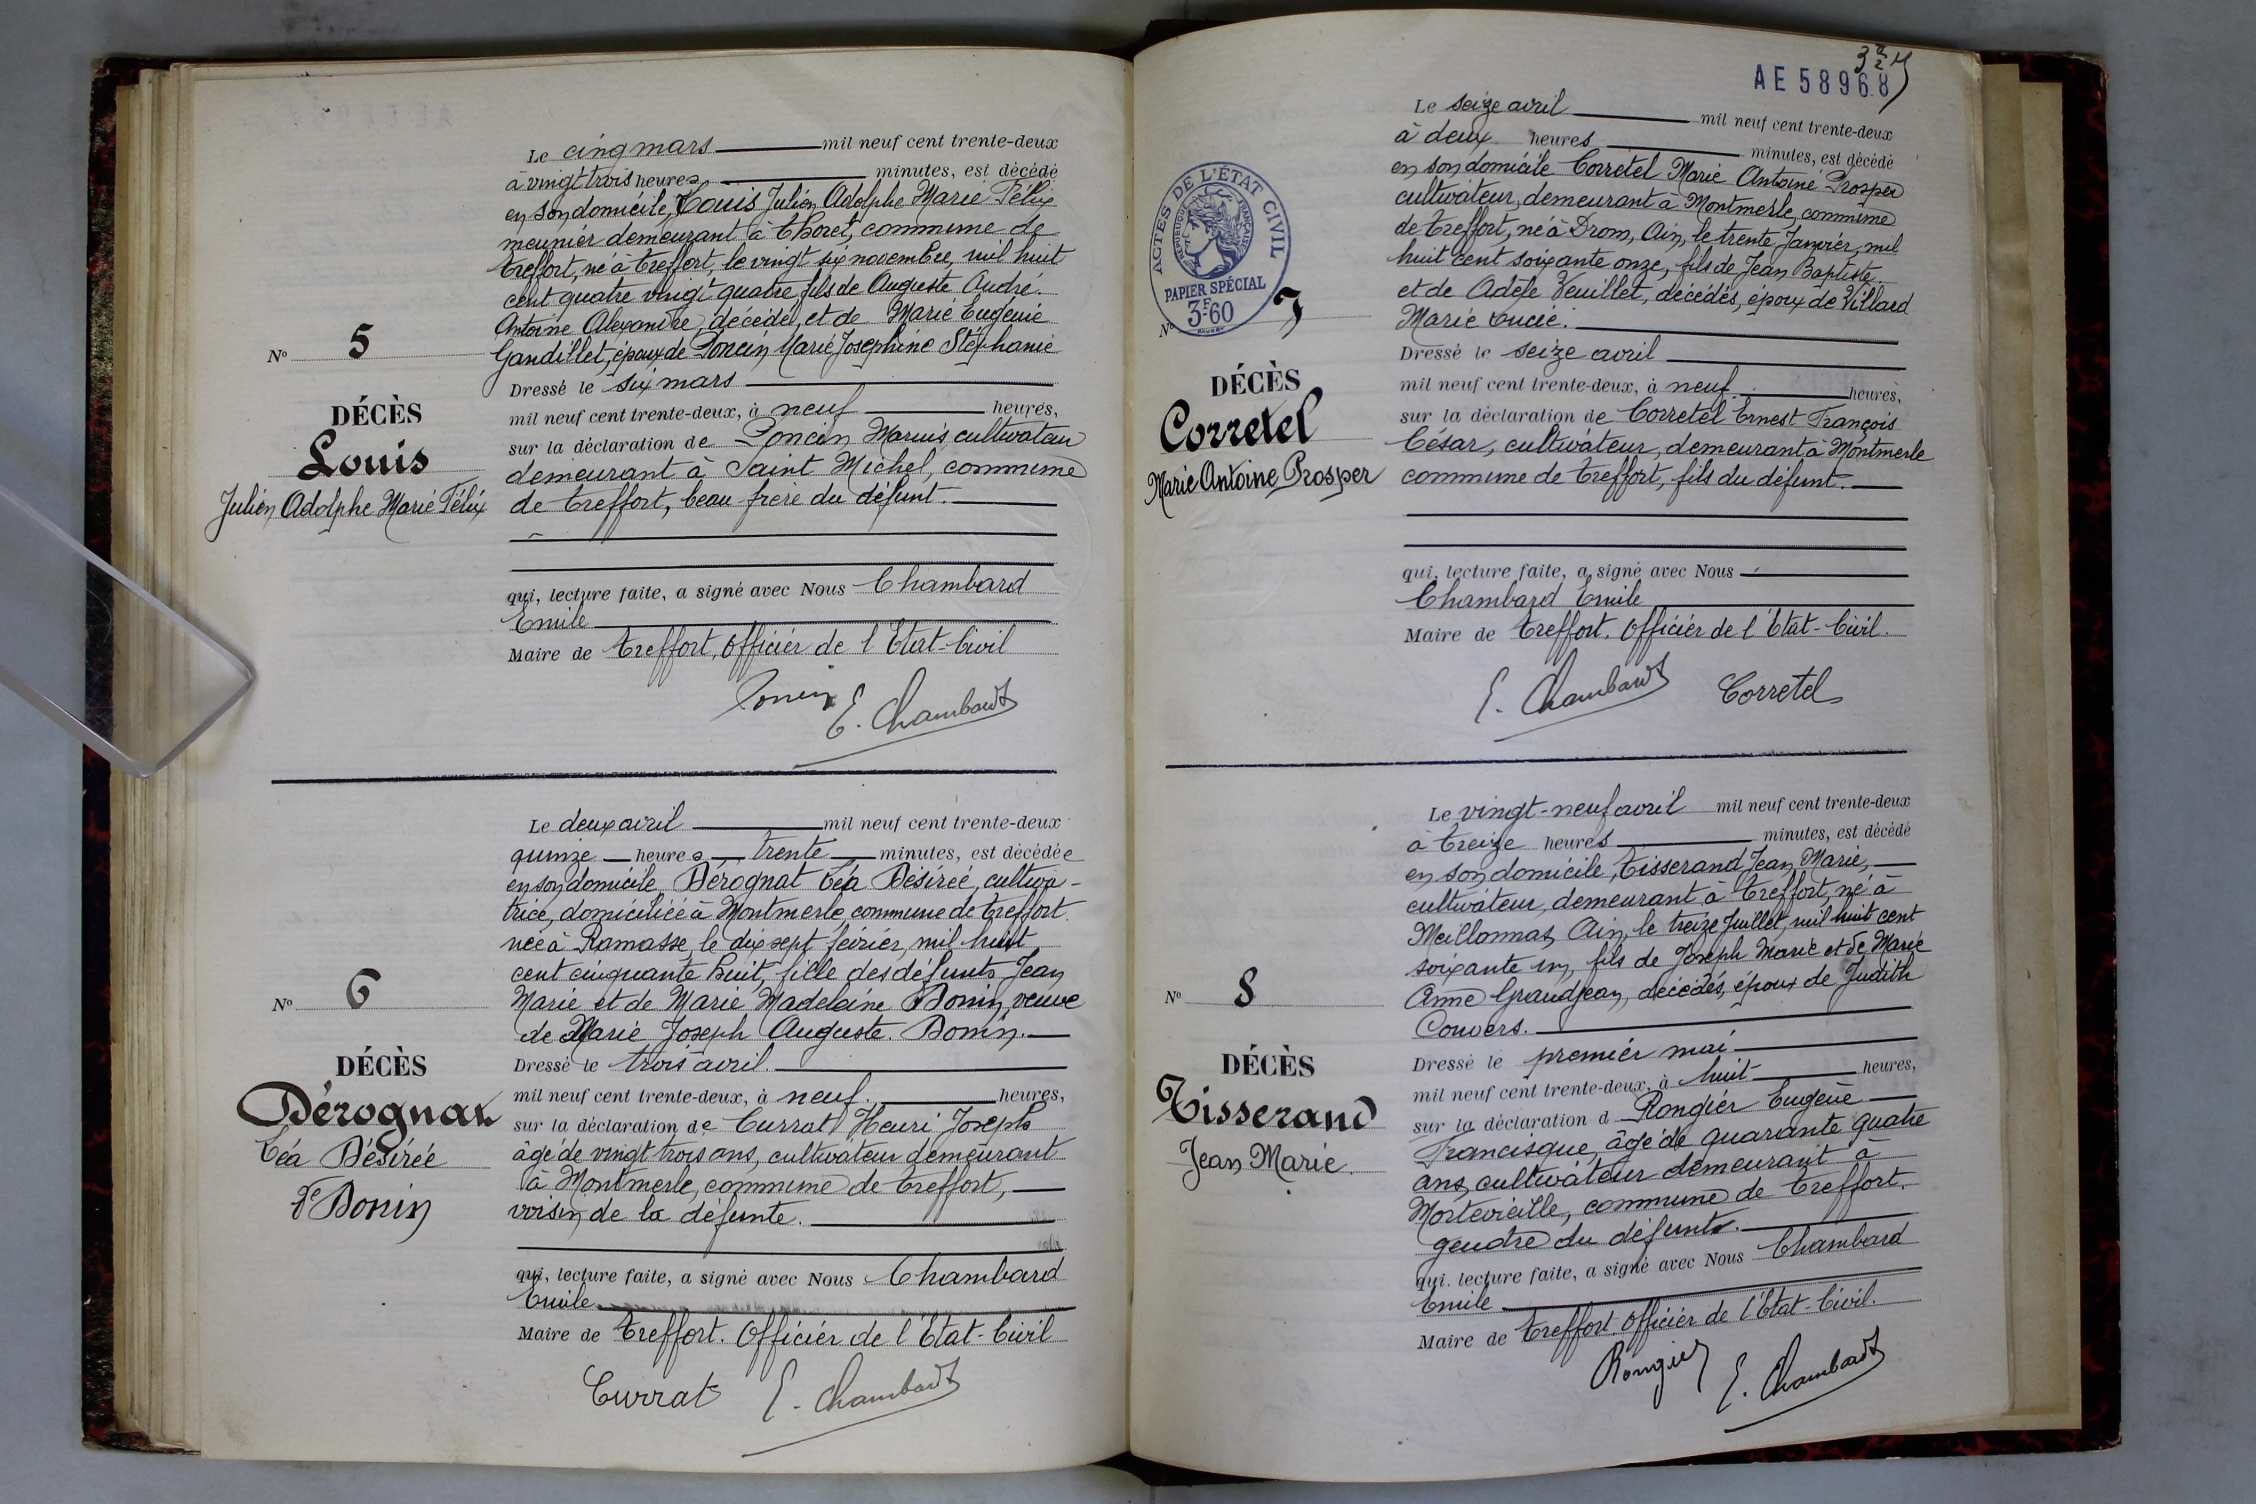 Le cinq mars mil neuf cent trente-deux
à vingt trois heures minutes, est décédé
en son domicile, Louis Julien Adolphe Marie Félix
meunier demeurant à Thoret, commune de
Treffort, né à Treffort, le vingt six novembre, mil huit
cent quatre vingt quatre, fils de Auguste André
Antoine Alexandre, décédé, et de Marie Eugénie
Gandillet, époux de Poncin Marie Joséphine Stéphanie
Dressé le six mars
mil neuf cent trente-deux, à neuf heures,
sur la déclaration de Poncin Marius cultivateur
demeurant à Saint Michel, commune
de Treffort, beau frère du défunt.
qui, lecture faite, a signé avec Nous Chambard
Emile
Maire de Treffort, Officier de l'Etat-Civil
Poncin E. Chambard
N° 5
DÉCÈS
Louis
Julien Adolphe Marie Félix
Le deux avril mil neuf cent trente-deux
quinze heures trente minutes, est décédée
en son domicile Dérognat Léa Désirée, cultiva-
trice, domiciliée à Montmerle, commune de Treffort.
née à Ramasse, le dix sept février, mil huit
cent cinquante huit, fille des défunts Jean
Marie et de Marie Madeleine Bonin, veuve
de Marie Joseph Auguste Bonin.
Dressé le trois avril.
mil neuf cent trente-deux, à neuf heures,
sur la déclaration de Currat Henri Joseph
âgé de vingt trois ans, cultivateur demeurant
à Montmerle, commune de Treffort,
voisin de la défunte.
qui, lecture faite, a signé avec Nous Chambard
Emile
Maire de Treffort. Officier de l'Etat-Civil
Currat E. Chambard
N° 6
DÉCÈS
Dérognat
Léa Désirée
Ve Bonin
AE 58968
ACTES DE L'ÉTAT CIVIL
RÉPUBLIQUE FRANÇAISE
PAPIER SPÉCIAL
3F60
Le seize avril mil neuf cent trente-deux
à deux heures minutes, est décédé
en son domicile Corretel Marie Antoine Prosper
cultivateur, demeurant à Montmerle, commune
de Treffort, né à Drom, Ain, le trente Janvier, mil
huit cent soixante onze, fils de Jean Baptiste
et de Adèle Veuillet, décédés, époux de Villard
Marie Lucie.
Dressé le seize avril
mil neuf cent trente-deux, à neuf heures,
sur la déclaration de Corretel Ernest François
César, cultivateur, demeurant à Montmerle
commune de Treffort, fils du défunt.
qui, lecture faite, a signé avec Nous
Chambard Emile
Maire de Treffort. Officier de l'Etat-Civil.
E. Chambard Corretel
N° 7
DÉCÈS
Corretel
Marie Antoine Prosper
Le vingt-neuf avril mil neuf cent trente-deux
à treize heures minutes, est décédé
en son domicile, Tisserand Jean Marie,
cultivateur, demeurant à Treffort, né à
Meillonnas, Ain, le treize Juillet, mil huit cent
soixante un, fils de Joseph Marie et de Marie
Anne Grandjean, décédés, époux de Judith
Convers.
Dressé le premier mai
mil neuf cent trente-deux, à huit heures,
sur la déclaration d Rongier Eugène
Francisque, âgé de quarante quatre
ans, cultivateur demeurant à
Mortevieille, commune de Treffort.
gendre du défunt.
qui, lecture faite, a signé avec Nous Chambard
Emile
Maire de Treffort. Officier de l'Etat-Civil.
Rongier E. Chambard
N° 8
DÉCÈS
Tisserand
Jean Marie